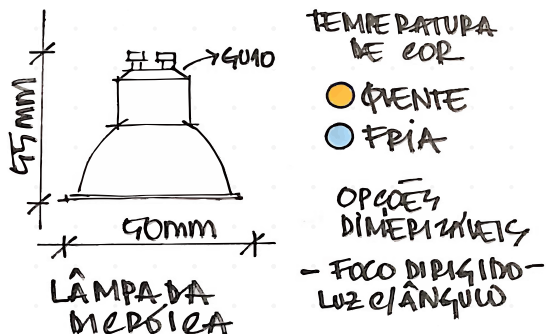 GU10
55mm
50mm
LÂMPADA
DICRÓICA
TEMPERATURA
DE COR
QUENTE
FRIA
OPÇÕES
DIMERIZÁVEIS
- FOCO DIRIGIDO -
LUZ C/ÂNGULO